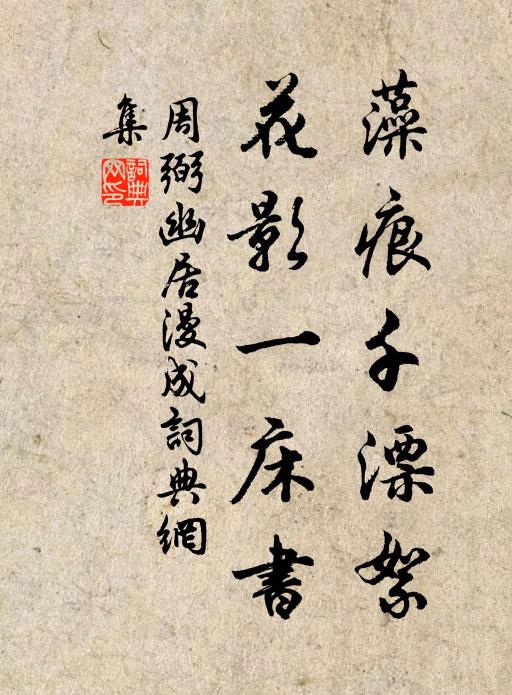 藻痕千漂絮
花影一床書
周弼幽居漫成詞典網
集
詞典网印